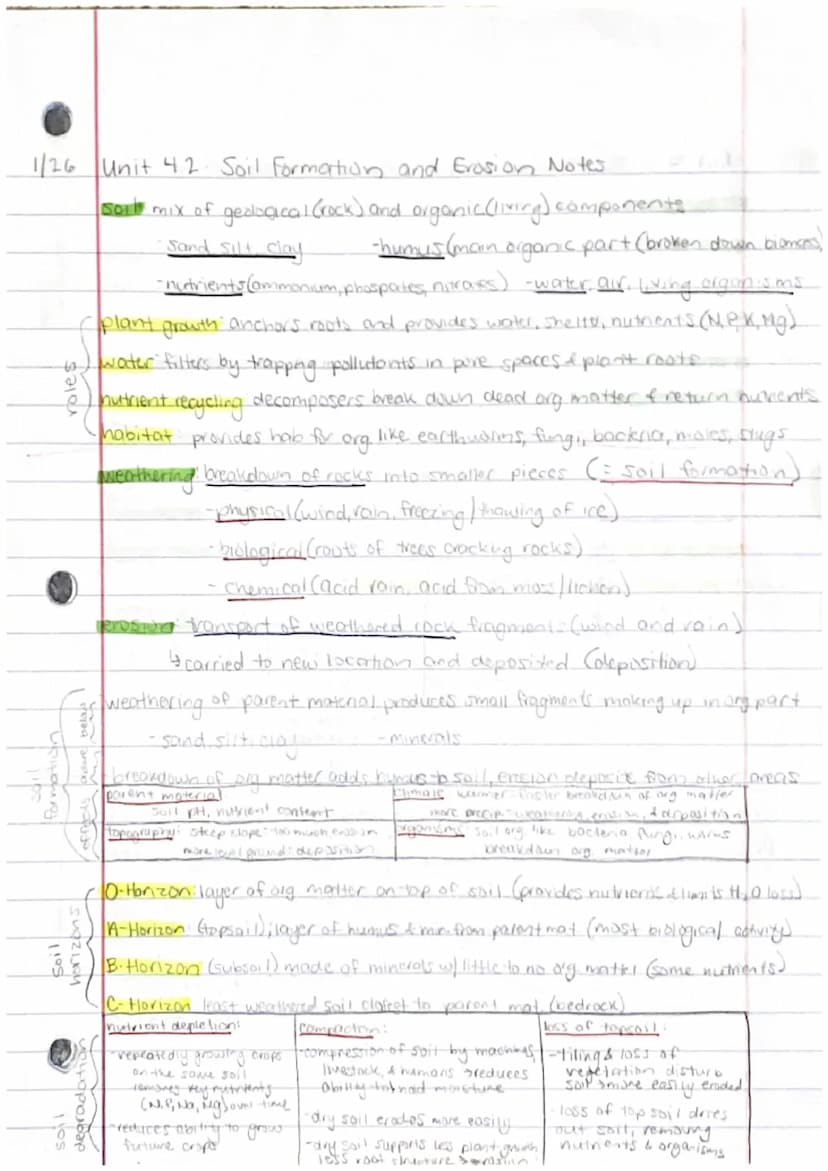 1/26 Unit 4.2: Soil Formation and Erosion Notes
soil: mix of geological (rock) and organic (living) components
- sand, silt, clay - humus (main organic part (broken down biomass)
- nutrients (ammonium, phospates, nitrates) - water, air, living organisms
roles
plant growth: anchors roots and provides water, shelter, nutrients (N, P, K, Mg)
water: filters by trapping pollutants in pore spaces & plant roots
nutrient recycling: decomposers break down dead org matter & return nutrients
habitat: provides hab for org like earthworms, fungi, bacteria, moles, slugs
weathering: breakdown of rocks into smaller pieces (= soil formation)
- physical (wind, rain, freezing/thawing of ice)
- biological (roots of trees cracking rocks)
- chemical (acid rain, acid from moss/lichen)
erosion: transport of weathered rock fragments (wind and rain)
↳ carried to new location and deposited (deposition)
soil formation
weathering of parent material produces small fragments making up inorg part
- sand, silt, clay - minerals
breakdown of org matter adds humus to soil, erosion deposits from other areas
effects
parent material
soil pH, nutrient content
climate: warmer = faster breakdown of org matter
more precip = weathering, erosion, & deposition
topography: steep slope = too much erosion
more level ground: deposition
organisms: soil org like bacteria, fungi, worms
breakdown org matter
soil horizons
O-Horizon: layer of org matter on top of soil (provides nutrients & limits H₂O loss)
A-Horizon: (topsoil); layer of humus & min. from parent mat (most biological activity)
B-Horizon: (subsoil) made of minerals w/ little to no org matter (some nutrients)
C-Horizon: least weathered soil closest to parent mat (bedrock)
soil degradation
nutrient depletion:
- repeatedly growing crops
on the same soil
removes key nutrients
(N, P, Na, Mg) over time
- reduces ability to grow
future crops
compaction:
- compression of soil by machines,
livestock, & humans → reduces
ability to hold moisture
- dry soil erodes more easily
- dry soil supports less plant growth
loss root structure → erosion
loss of topsoil:
- tiling & loss of
vegetation disturb
soil → more easily eroded
- loss of top soil dries
out soil, removing
nutrients & organisms